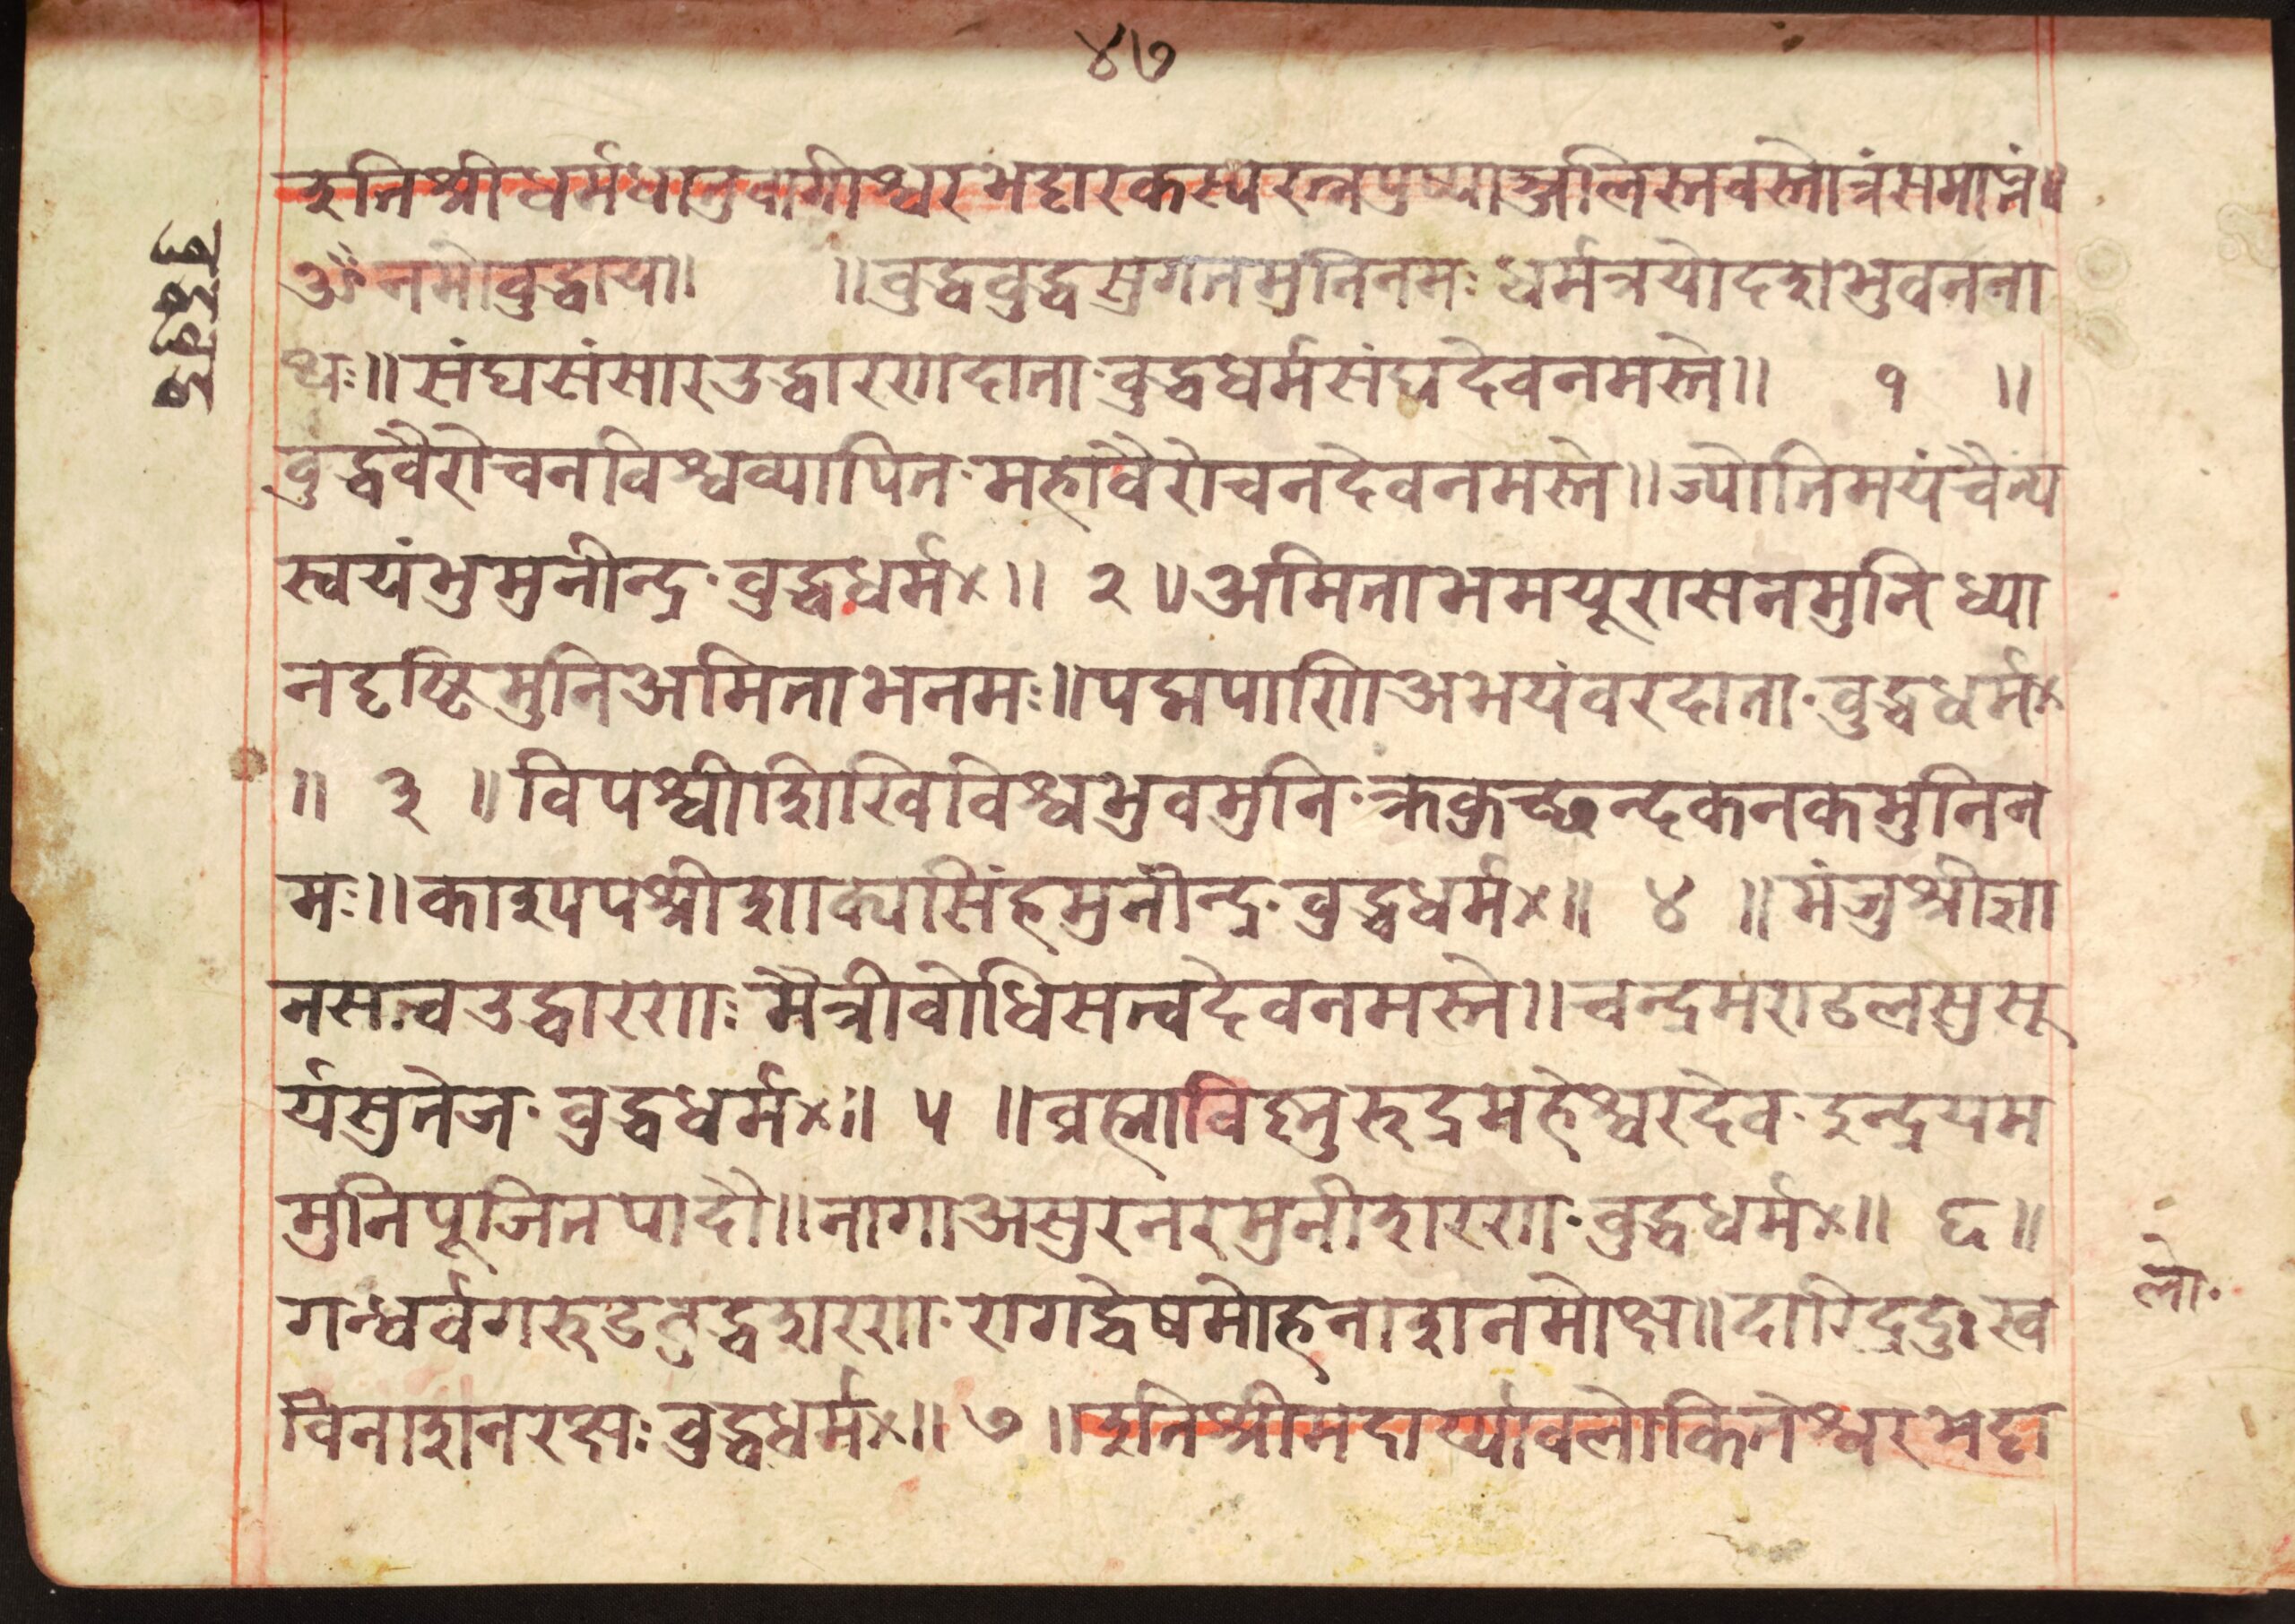 ४७
इतिश्रीधर्मधातुवागीश्वरभट्टारकस्यरत्नपुष्पाञ्जलिस्तवस्तोत्रंसमाप्तं॥
ॐनमोवुद्धाय॥ ॥वुद्धवुद्धसुगतमुनिनमः धर्मत्रयोदशभुवनना
थः॥संघसंसारउद्धारणदाता·वुद्धधर्मसंघदेवनमस्ते॥ १ ॥
वुद्धवैरोचनविश्वव्यापित·महावैरोचनदेवनमस्ते॥ज्योतिमयंचैत्य
स्वयंभुमुनीन्द्र·वुद्धधर्म×॥ २ ॥अमिताभमयूरासनमुनिध्या
नदृष्टिमुनिअमिताभनमः॥पद्मपाणिअभयंवरदाता·वुद्धधर्म×
॥ ३ ॥विपश्वीशिखिविश्वभुवमुनि·क्रकुच्छन्दकनकमुनिन
मः॥काश्यपश्रीशाक्यसिंहमुनीन्द्र·वुद्धधर्म×॥ ४ ॥मंजुश्रीज्ञा
नसत्वउद्धारणः मैत्रीवोधिसत्वदेवनमस्ते॥चन्द्रमण्डलसुसू
र्यसुतेज·वुद्धधर्म×॥ ५ ॥व्रह्माविष्नुरुद्रमहेश्वरदेव·इन्द्रयम
मुनिपूजितपादौ॥नागाअसुरनरमुनीशरण·वुद्धधर्म×॥ ६॥
गन्धर्वगरुडवुद्धशरण·रागद्वेषमोहनाशनमोक्ष॥दारिद्रदुःख
विनाशनरक्षः वुद्धधर्म×॥ ७ ॥इतिश्रीमदार्य्यावलोकितेश्वरभट्टा
लो·